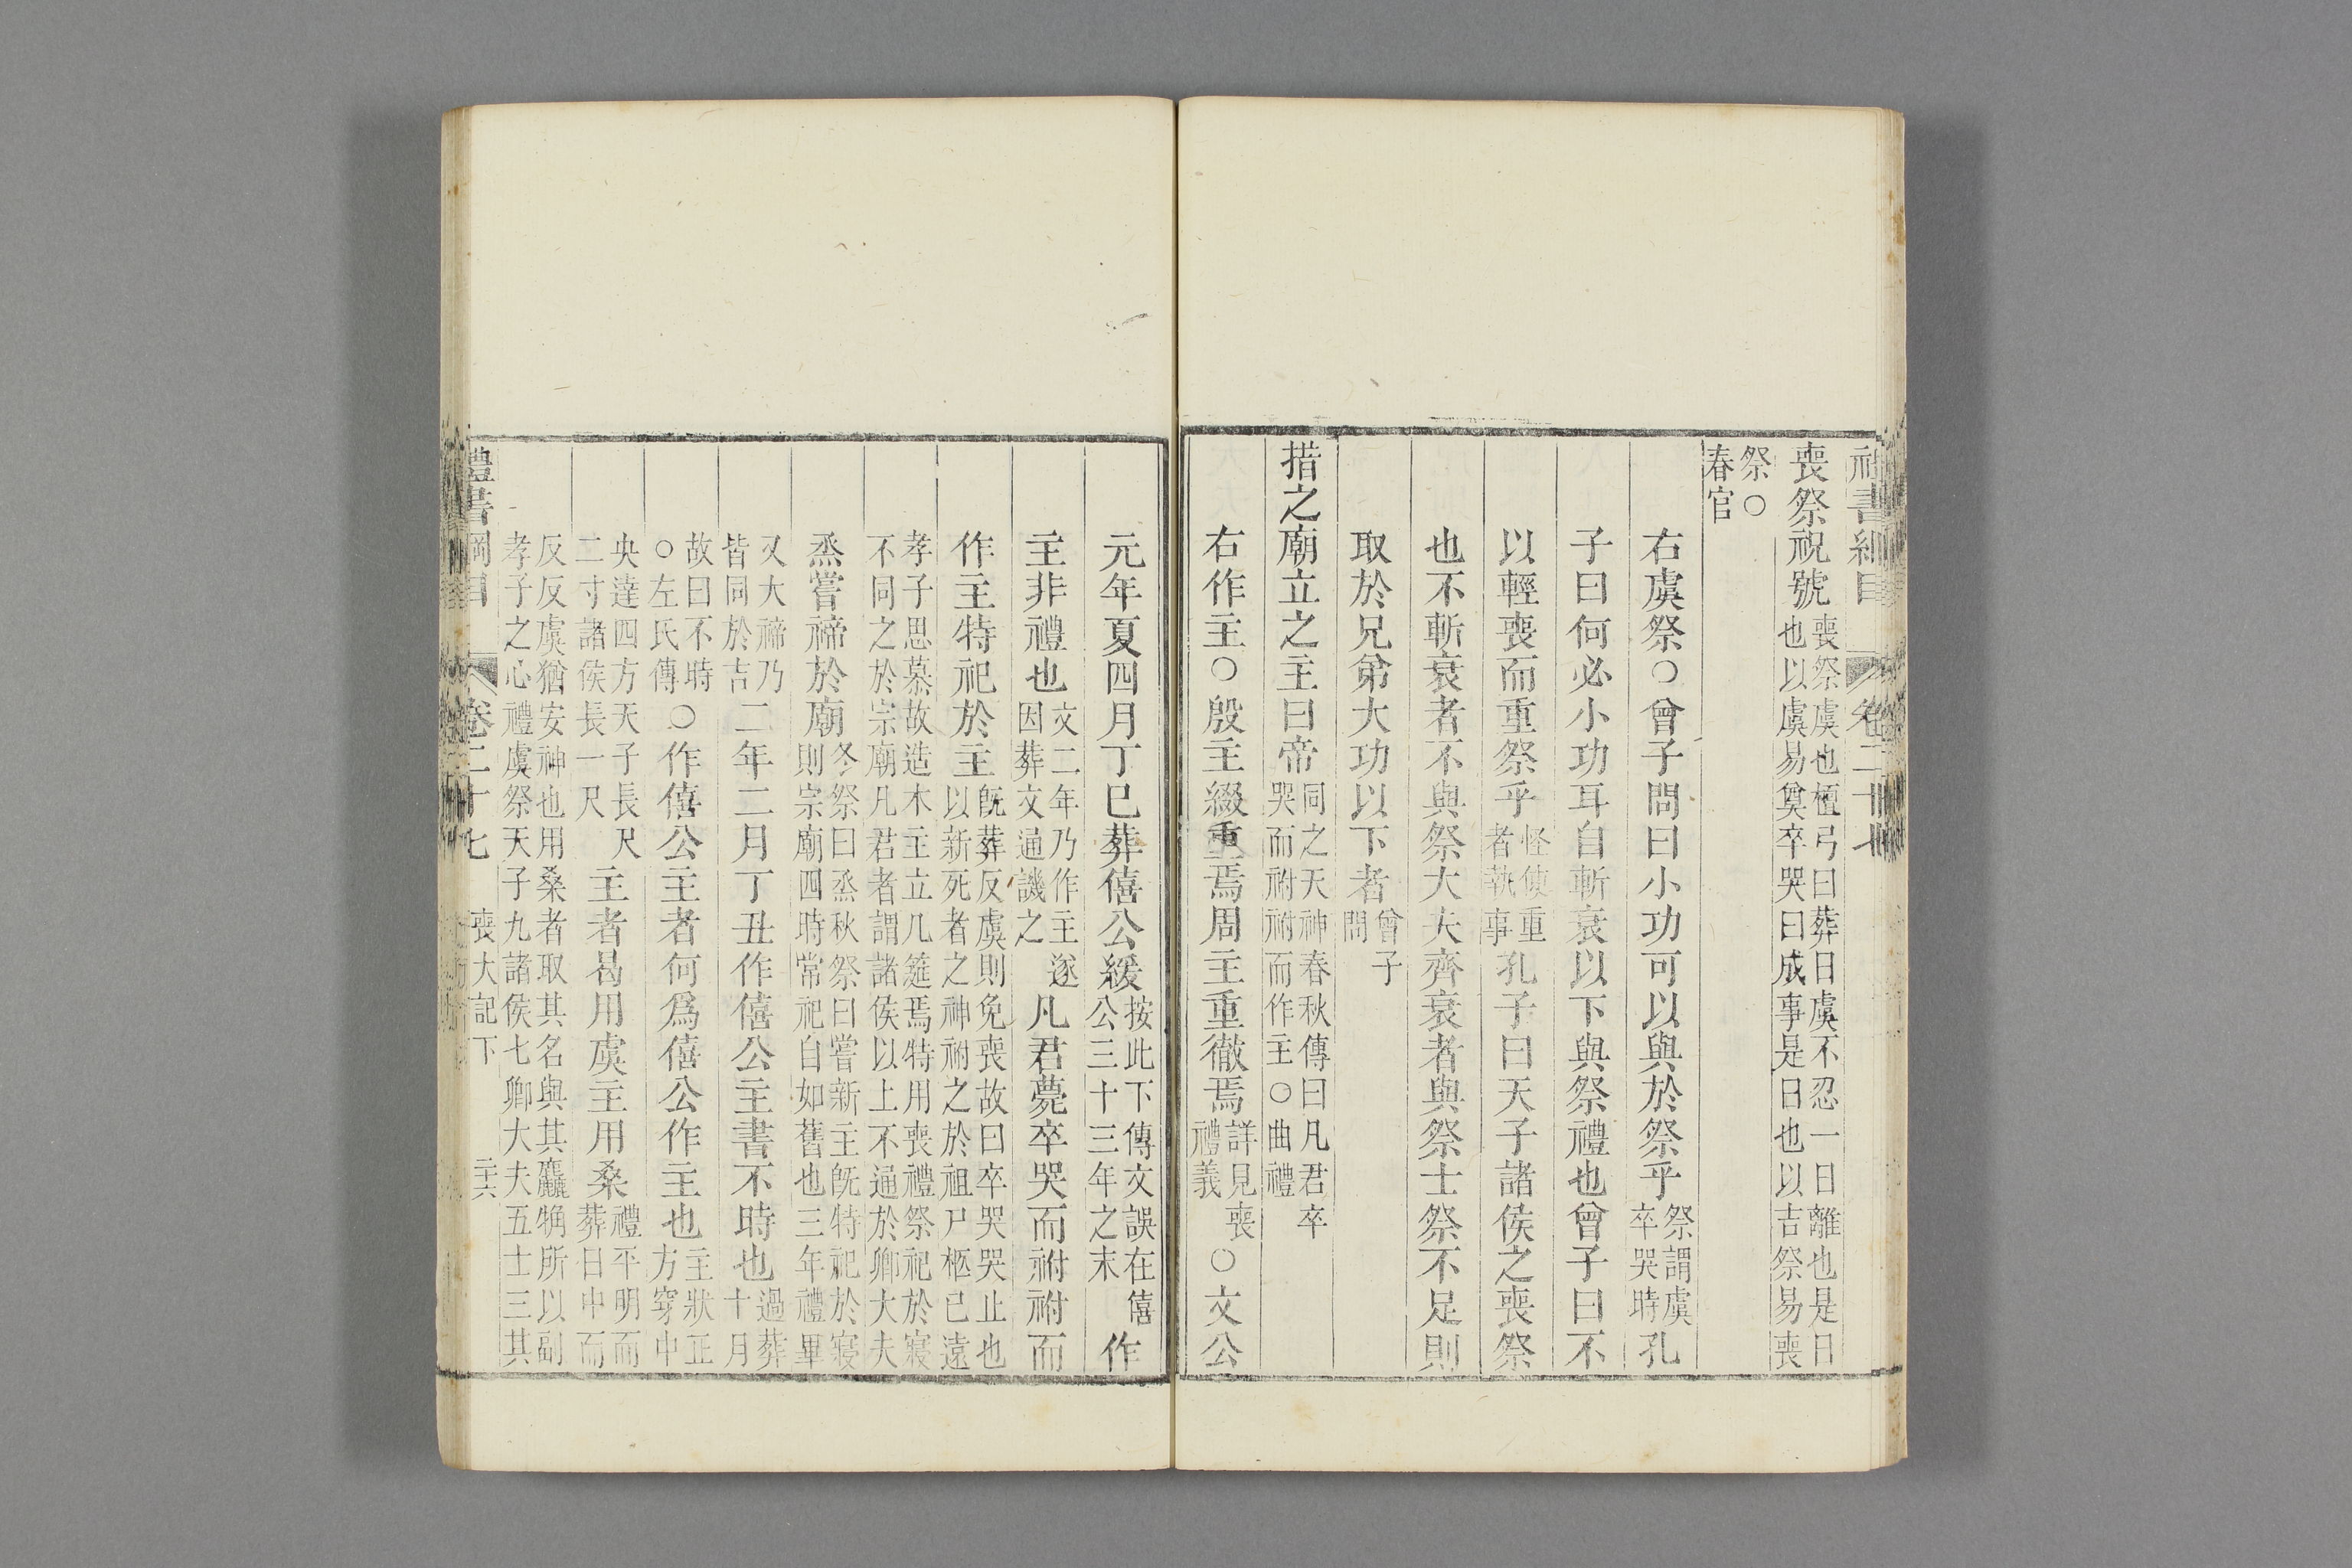 禮書綱目 卷二十七
喪祭祝號喪祭虞也檀弓曰葬日虞不忍一日離也是日也以虞易奠卒哭曰成事是日也以吉祭易喪
祭○春官
右虞祭○曾子問曰小功可以與於祭乎祭謂虞卒哭時孔
子曰何必小功耳自斬衰以下與祭禮也曾子曰不
以輕喪而重祭乎怪使重者執事孔子曰天子諸侯之喪祭
也不斬衰者不與祭大夫齊衰者與祭士祭不足則
取於兄弟大功以下者曾子問
措之廟立之主曰帝同之天神春秋傳曰凡君卒哭而祔祔而作主○曲禮
右作主○殷主綴重焉周主重徹焉詳見喪禮義○文公
元年夏四月丁巳葬僖公緩按此下傳文誤在僖公三十三年之末作
主非禮也文二年乃作主遂因葬文通譏之凡君薨卒哭而祔祔而
作主特祀於主既葬反虞則免喪故曰卒哭哭止也以新死者之神祔之於祖尸柩已遠
孝子思慕故造木主立几筵焉特用喪禮祭祀於寢不同之於宗廟凡君者謂諸侯以上不通於卿大夫
烝嘗禘於廟冬祭曰烝秋祭曰嘗新主既特祀於寢則宗廟四時常祀自如舊也三年禮畢
又大禘乃皆同於吉二年二月丁丑作僖公主書不時也過葬十月
故曰不時○左氏傳○作僖公主者何爲僖公作主也主狀正方穿中
央達四方天子長尺二寸諸侯長一尺主者曷用虞主用桑禮平明而葬日中而
反反虞猶安神也用桑者取其名與其麤觕所以副孝子之心禮虞祭天子九諸侯七卿大夫五士三其
禮書綱目 卷二十七 喪大記下 二十六